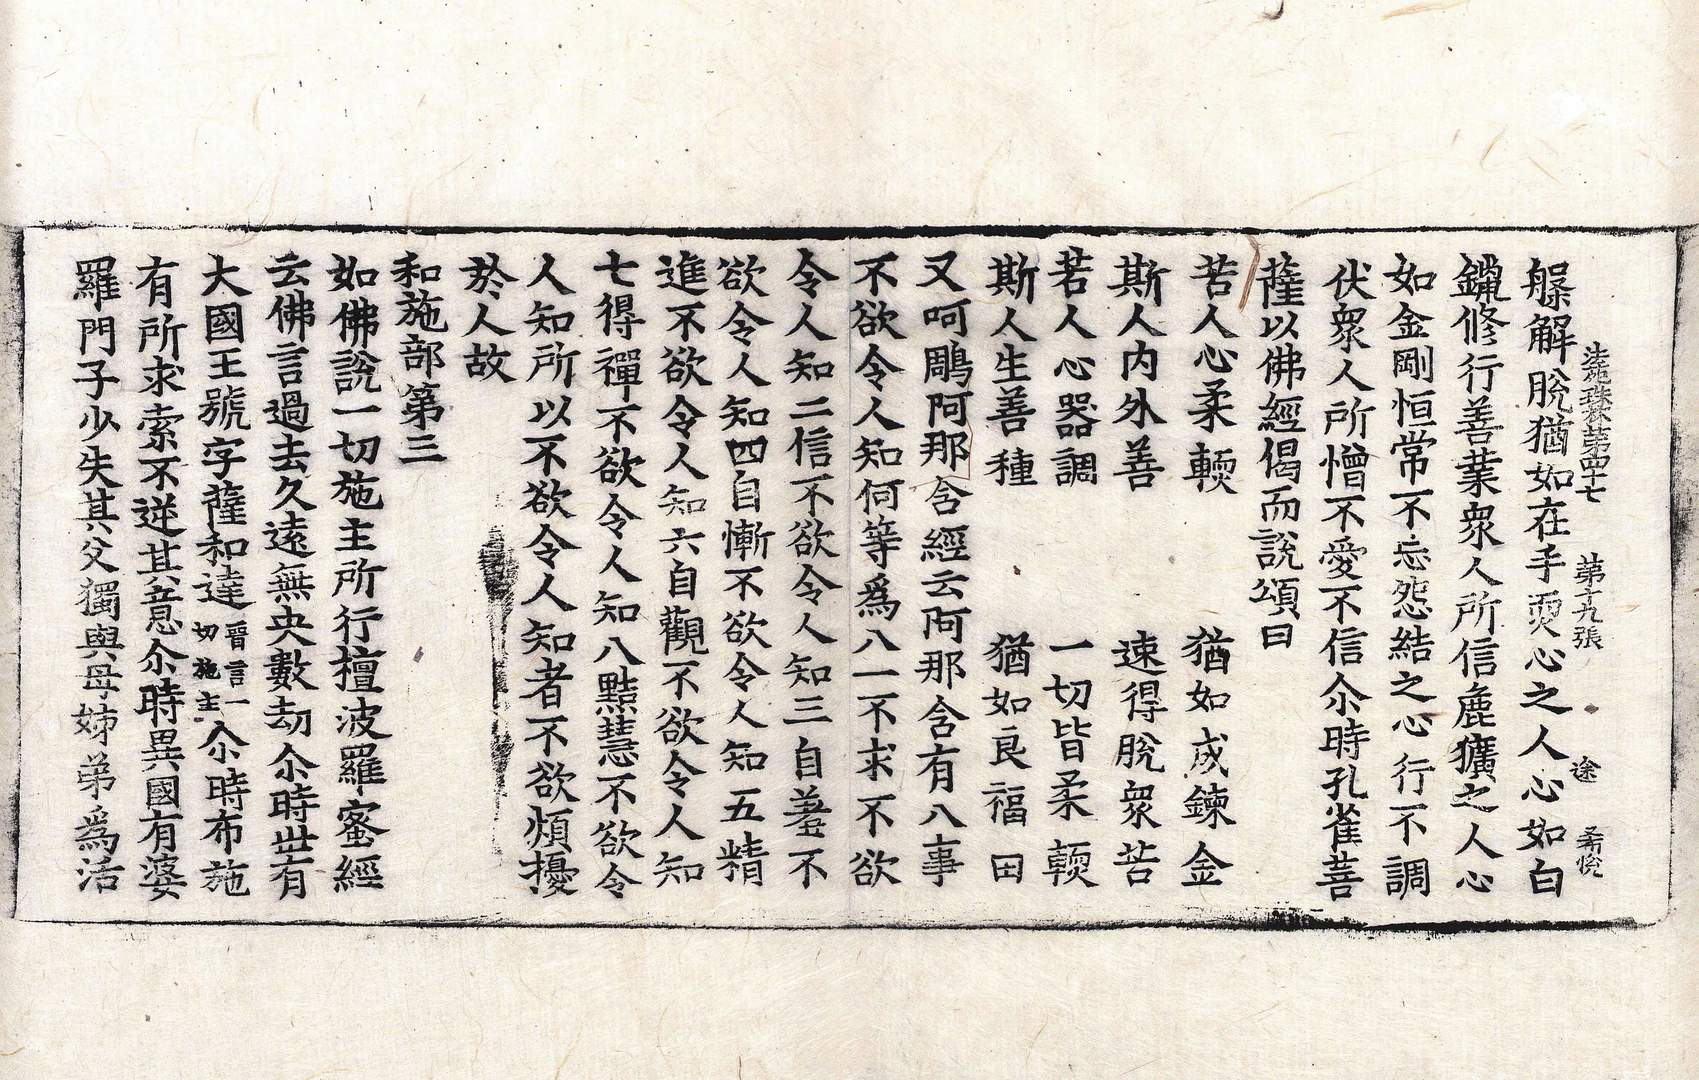 法苑珠林第四十七 第十九張 途 希悛
躶解脫猶如在手耎心之人心如白
鑞修行善業衆人所信麁獷之人心
如金剛恒常不忘怨結之心行不調
伏衆人所憎不愛不信尒時孔雀菩
薩以佛經偈而說頌曰
苦人心柔輭 猶如成鍊金
斯人内外善 速得脫衆苦
若人心器調 一切皆柔輭
斯人生善種 猶如良福田
又呵鵰阿那含經云阿那含有八事
不欲令人知何等爲八一不求不欲
令人知二信不欲令人知三自羞不
欲令人知四自慚不欲令人知五精
進不欲令人知六自觀不欲令人知
七得禪不欲令人知八黠慧不欲令
人知所以不欲令人知者不欲煩擾
於人故
和施部第三
如佛說一切施主所行檀波羅蜜經
云佛言過去久遠無央數劫尒時世有
大國王號字薩和達晉言一切施主尒時布施
有所求索不逆其意尒時異國有婆
羅門子少失其父獨與母姊弟爲活